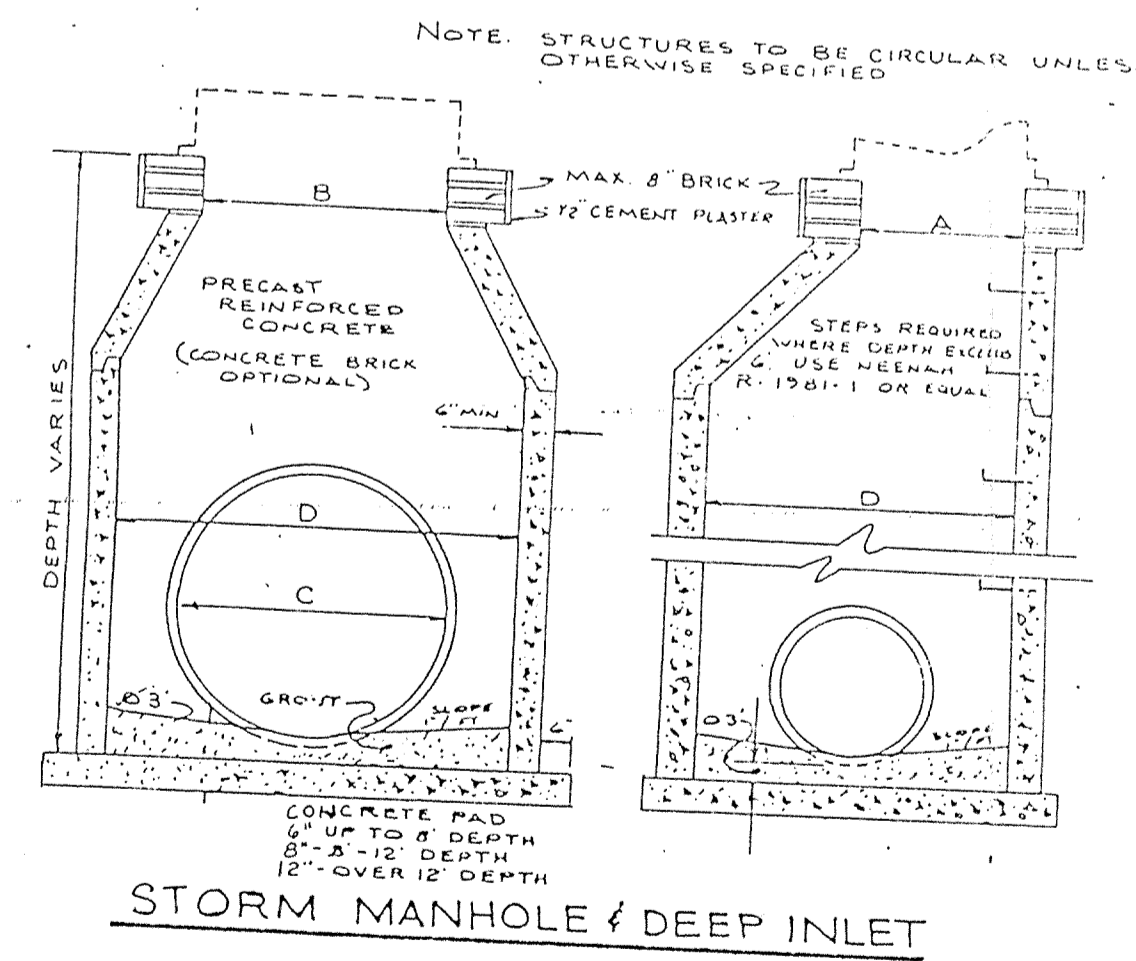 NOTE. STRUCTURES TO BE CIRCULAR UNLES
OTHERWISE SPECIFIED
B
MAX. 8" BRICK
1/2" CEMENT PLASTER
A
PRECAST
REINFORCED
CONCRETE
(CONCRETE BRICK
OPTIONAL)
STEPS REQUIRED
WHERE DEPTH EXCEEDS
6' USE NEENAH
R-1981-1 OR EQUAL
6" MIN
DEPTH VARIES
D
D
C
0.3'
GROUT
SLOPE
FT
6"
0.3'
SLOPE
FT
CONCRETE PAD
6" UP TO 8' DEPTH
8"-8'-12' DEPTH
12"-OVER 12' DEPTH
STORM MANHOLE & DEEP INLET